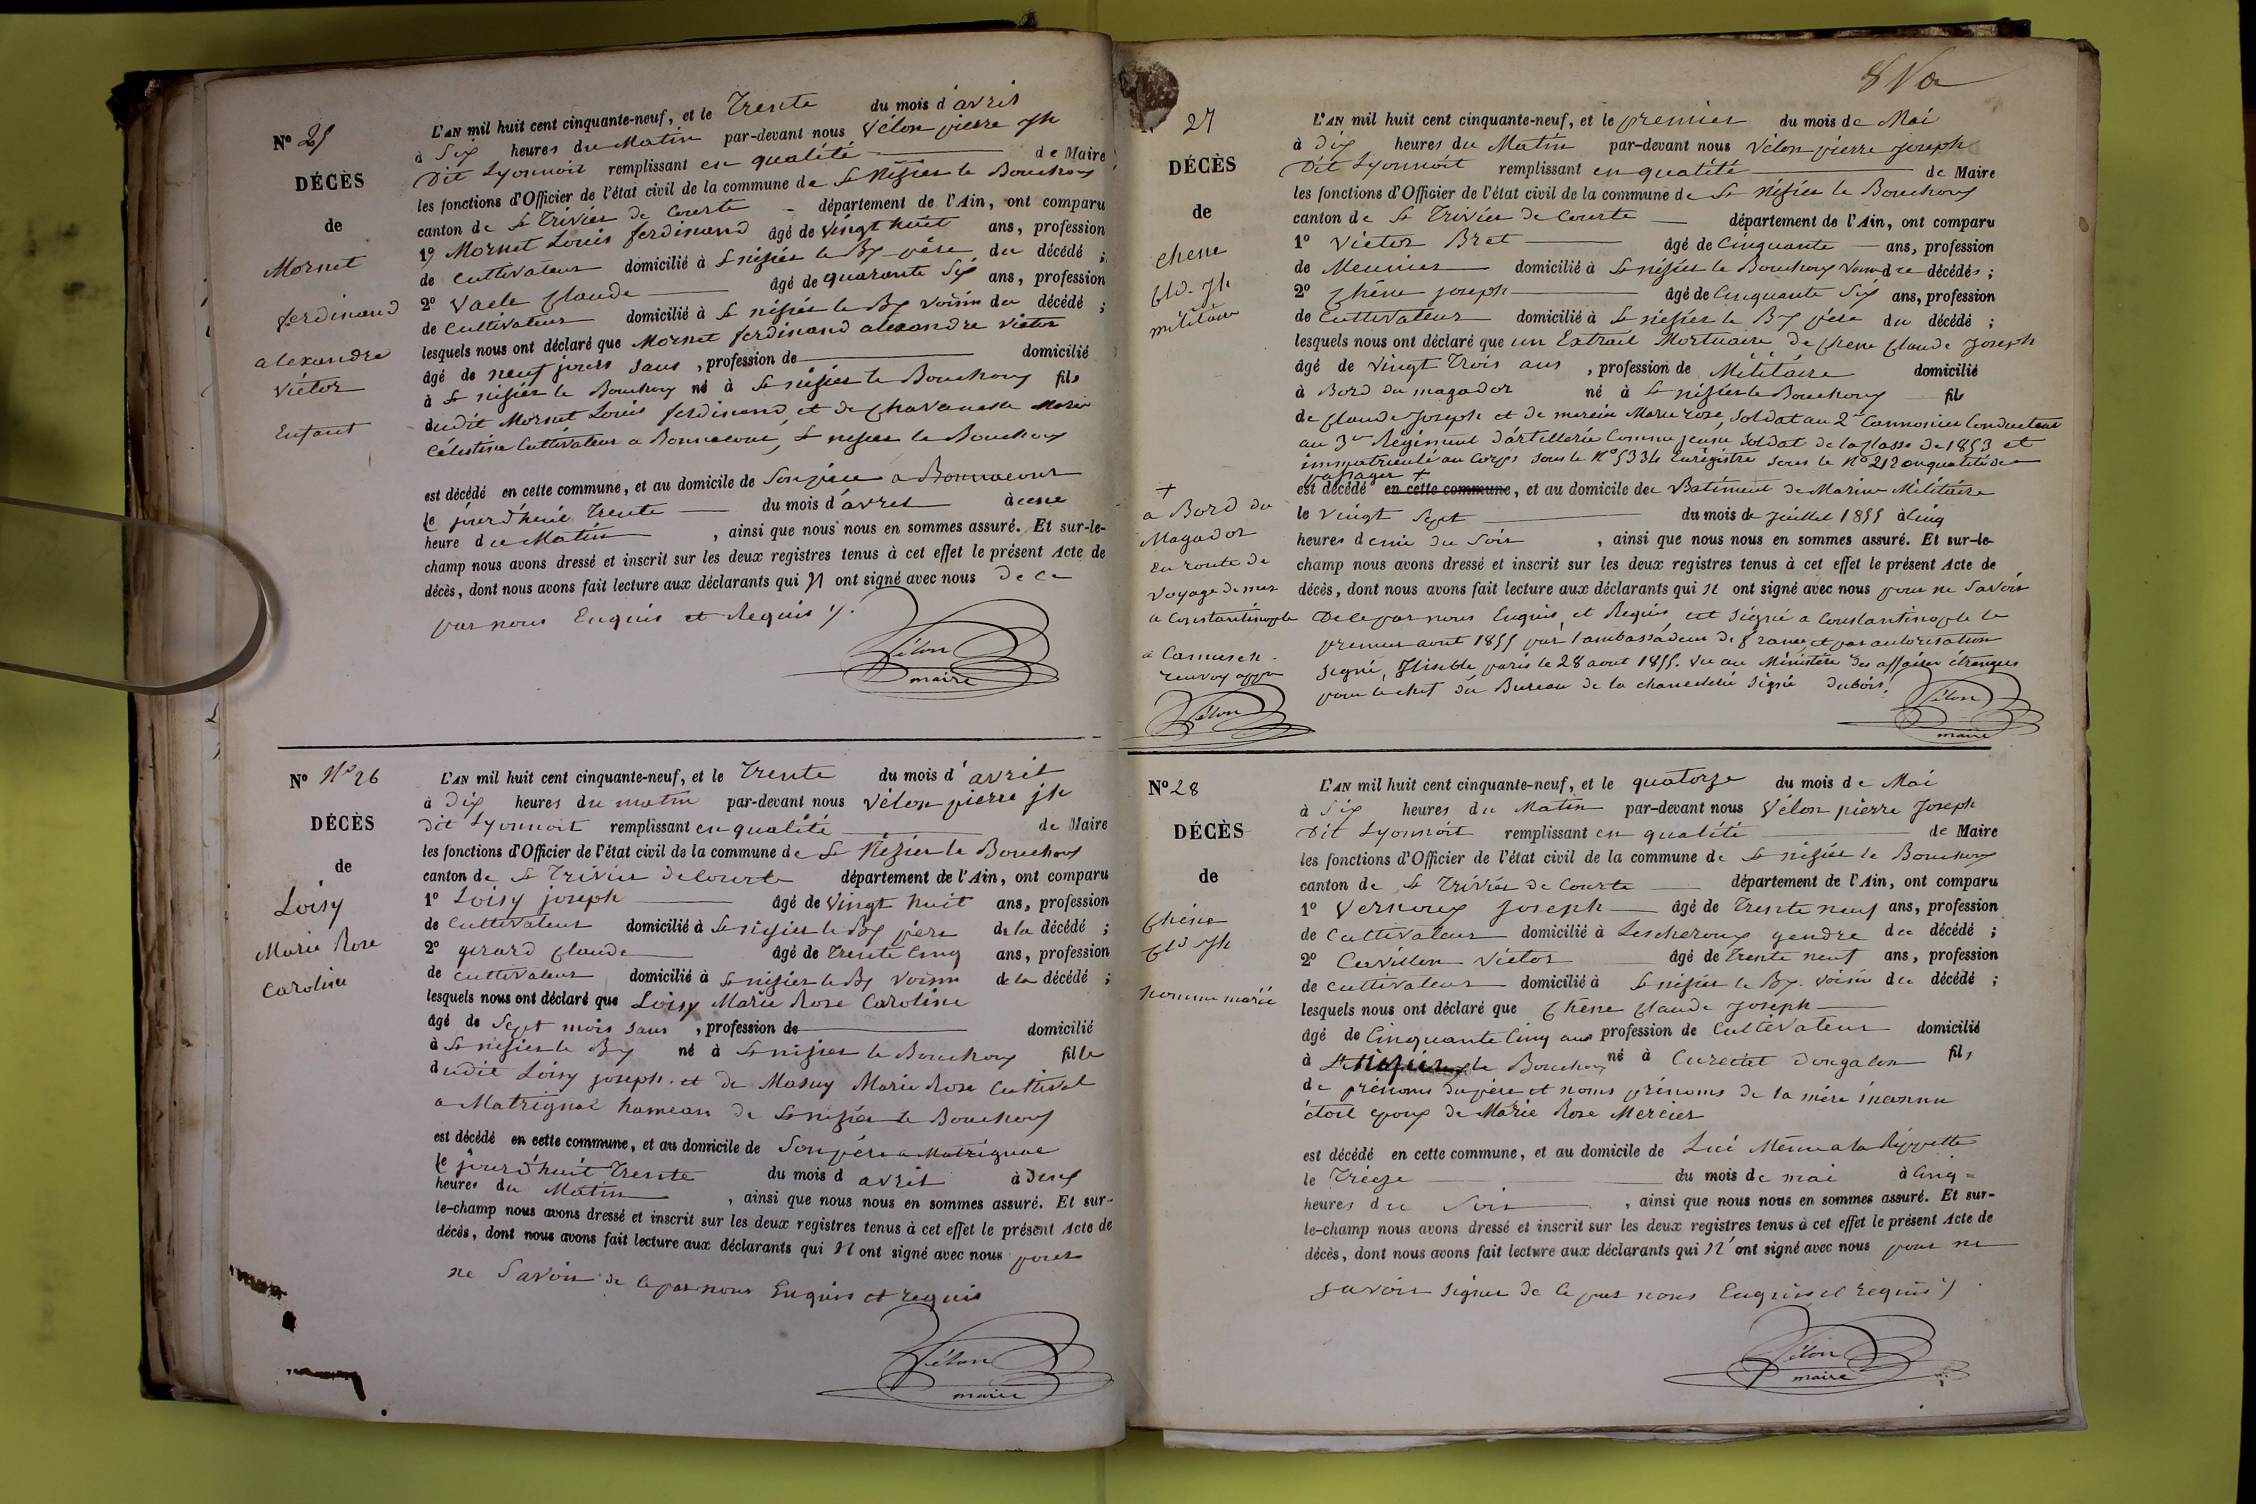 N° 25
DÉCÈS
de
Mornet
ferdinand
alexandre
Victor
Enfant
L'AN mil huit cent cinquante-neuf, et le Trente du mois d'avril
à Six heures du Matin par-devant nous Vélon pierre jh
Dit Lyonnoit remplissant en qualité de Maire
les fonctions d'Officier de l'état civil de la commune de St Nizier le Bouchoux
canton de St Trivier de Courte département de l'Ain, ont comparu
1° Mornet Louis ferdinand âgé de Vingt huit ans, profession
de Cultivateur domicilié à St nizier le Bx père du décédé ;
2° Vaele Claude âgé de quarante Six ans, profession
de Cultivateur domicilié à St nizier le Bx Voisin du décédé ;
lesquels nous ont déclaré que Mornet ferdinand alexandre Victor
âgé de neuf jours Sans , profession de domicilié
à St nizier le Bouchoux né à St nizier le Bouchoux fils
dudit Mornet Louis ferdinand et de Marie
Célestine Cultivateur a Bonnacour, St nizier le Bouchoux
est décédé en cette commune, et au domicile de Son père a Bonnacour
le jourd'huit Trente du mois d'avril à une
heure du Matin , ainsi que nous nous en sommes assuré. Et sur-le-
champ nous avons dressé et inscrit sur les deux registres tenus à cet effet le présent Acte de
décès, dont nous avons fait lecture aux déclarants qui N ont signé avec nous de ce
par nous Enquis et Requis ./.
Vélon
maire
N° N° 26
DÉCÈS
de
Loisy
Marie Rose
Caroline
L'AN mil huit cent cinquante-neuf, et le Trente du mois d'avril
à Dix heures du matin par-devant nous Vélon pierre jh
dit Lyonnoit remplissant en qualité de Maire
les fonctions d'Officier de l'état civil de la commune de St Nizier le Bouchoux
canton de St Trivier de Courte département de l'Ain, ont comparu
1° Loisy joseph âgé de Vingt huit ans, profession
de Cultivateur domicilié à St nizier le Bx père de la décédé ;
2° girard Claude âgé de Trente Cinq ans, profession
de Cultivateur domicilié à St nizier le Bx Voisin de la décédé ;
lesquels nous ont déclaré que Loisy Marie Rose Caroline
âgé de Sept mois Sans , profession de domicilié
à St nizier le Bx né à St nizier le Bouchoux fille
dudit Loisy joseph et de Masuy Marie Rose Cultivat
a Matrignat hameau de St nizier le Bouchoux
est décédé en cette commune, et au domicile de Son père a Matrignat
le jourd'huit Trente du mois d avril à Deux
heures du Matin , ainsi que nous nous en sommes assuré. Et sur-
le-champ nous avons dressé et inscrit sur les deux registres tenus à cet effet le présent Acte de
décès, dont nous avons fait lecture aux déclarants qui N ont signé avec nous pour
ne Savoir de ce par nous Enquis et requis
Vélon
maire
27
DÉCÈS
de
Chene
Cld. jh
militaire
L'AN mil huit cent cinquante-neuf, et le premier du mois de Mai
à dix heures du Matin par-devant nous Vélon pierre joseph
Dit Lyonnoit remplissant en qualité de Maire
les fonctions d'Officier de l'état civil de la commune de St Nizier le Bouchoux
canton de St Trivier de Courte département de l'Ain, ont comparu
1° Victor Bret âgé de Cinquante ans, profession
de Meunier domicilié à St nizier le Bouchoux décédé ;
2° Chêne joseph âgé de Cinquante Six ans, profession
de Cultivateur domicilié à St nizier le Bx père du décédé ;
lesquels nous ont déclaré que un Extrait Mortuaire de Chene Claude Joseph
âgé de Vingt Trois ans , profession de Militaire domicilié
à Bord du magador né à St nizier le Bouchoux fils
de Claude Joseph et de mercier Marie rose, Soldat au 2e Cannonier Conducteur
au 3me Régiment d'artillerie Comme jeune Soldat de la Classe de 1853 et
immatriculé au Corps Sous le N° 5334 Enregistré Sous le N° 212 en qualité de
passager +
est décédé en cette commune, et au domicile de Batiment de Marine Militaire
le Vingt Sept du mois de juillet 1855 à Cinq
heures demie du Soir , ainsi que nous nous en sommes assuré. Et sur-le-
champ nous avons dressé et inscrit sur les deux registres tenus à cet effet le présent Acte de
décès, dont nous avons fait lecture aux déclarants qui N ont signé avec nous pour ne Savoir
De ce par nous Enquis et Requis, est Signé a Constantinople le
premier aout 1855 par l'ambassadeur de france, et par autorisation
Signé, Illisible paris le 28 aout 1855. Vu au Ministère des affaires étrangers
pour le chef du Bureau de la chancellerie Signé dubois.
+
a Bord du
Magador
En route de
Voyage de mer
a Constantinople
a Camiesch
renvoy appr
Vélon
Vélon
maire
N° 28
DÉCÈS
de
Chêne
Cld jh
homme marié
L'AN mil huit cent cinquante-neuf, et le quatorze du mois de Mai
à Six heures du Matin par-devant nous Vélon pierre Joseph
Dit Lyonnoit remplissant en qualité de Maire
les fonctions d'Officier de l'état civil de la commune de St nizier le Bouchoux
canton de St Trivier de Courte département de l'Ain, ont comparu
1° Vernoux Joseph âgé de Trente neuf ans, profession
de Cultivateur domicilié à Lescheroux gendre du décédé ;
2° Cuvillon Victor âgé de Trente neuf ans, profession
de Cultivateur domicilié à St nizier le Bx. Voisin du décédé ;
lesquels nous ont déclaré que Chêne Claude Joseph
âgé de Cinquante Cinq ans profession de Cultivateur domicilié
à St Nizier le Bouchoux né à Curciat Dongalon fils
de prénoms du père et noms prénoms de la mère inconnu
étoit Epoux de Marie Rose Mercier
est décédé en cette commune, et au domicile de a la Rippette
le Treize du mois de mai à Cinq
heures du Soir , ainsi que nous nous en sommes assuré. Et sur-
le-champ nous avons dressé et inscrit sur les deux registres tenus à cet effet le présent Acte de
décès, dont nous avons fait lecture aux déclarants qui N' ont signé avec nous pour ne
Savoir Signer de Ce par nous Enquis et requis ./.
Vélon
maire